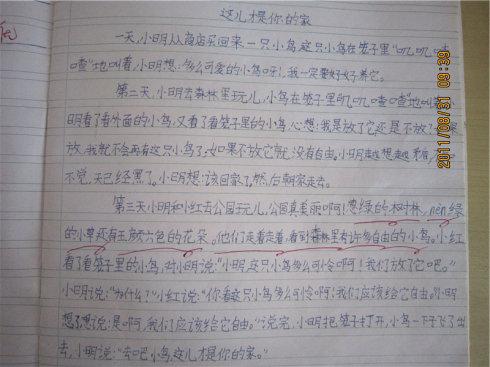 这儿才是你的家
一天,小明从商店买回来一只小鸟,这只小鸟在笼子里“叽叽
喳”地叫着,小明想:多么可爱的小鸟呀!我一定要好好养它。
第二天,小明去森林里玩儿,小鸟在笼子里叽叽喳喳地叫
明看了看外面的小鸟,又看了看笼子里的小鸟,心想:我是放了它还是不放?
放,我就不会再有这只小鸟了,如果不放它就没有自由。小明越想越矛盾,
不觉,天已经黑了。小明想:该回家了。然后朝家走去。
第三天小明和小红去公园玩儿,公园真美丽啊!葱绿的树林,nèn绿
的小草还有五颜六色的花朵。他们走着走着,看到森林里有许多自由的小鸟。小红
看了看笼子里的小鸟,对小明说:“小明,这只小鸟多么可怜啊!我们放了它吧。”
小明说:“为什么?”小红说:“你看这只小鸟多么可怜啊,我们应该给它自由。”小明
想了想说:是啊,我们应该给它自由。”说完,小明把笼子打开,小鸟一下子飞了出
去,小明说:“去吧小鸟,这儿才是你的家。”
2011/08/31 09:39